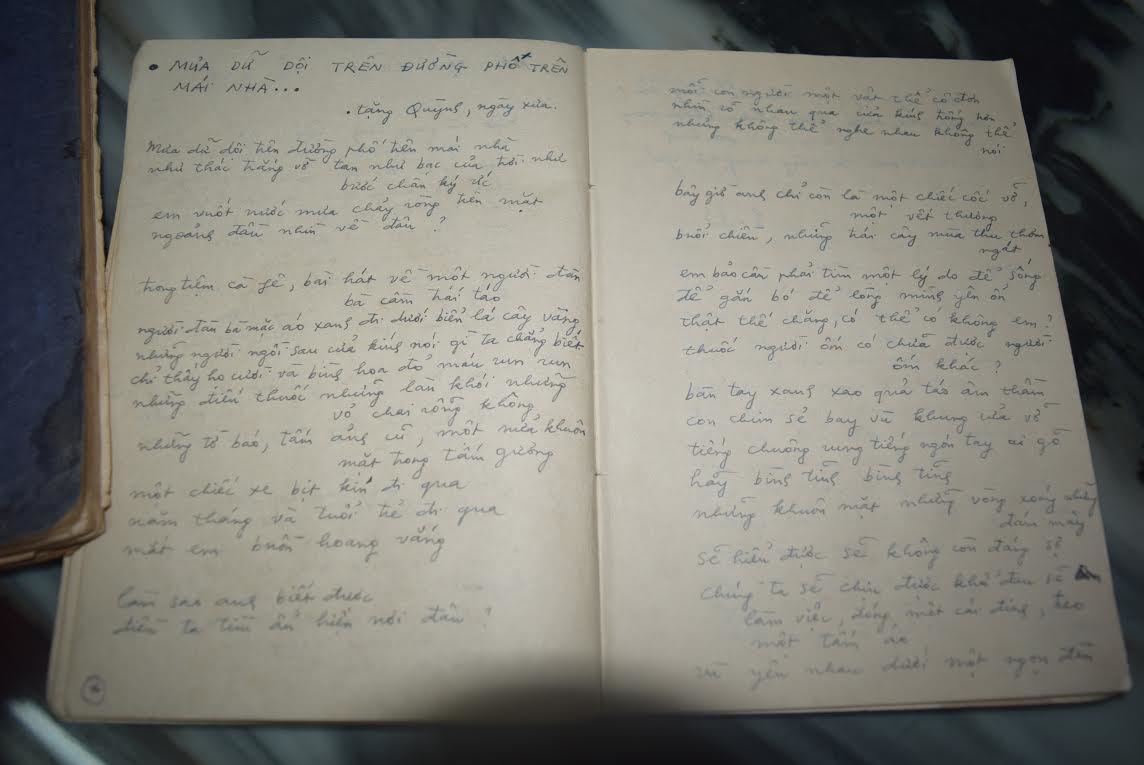 • MƯA DỮ DỘI TRÊN ĐƯỜNG PHỐ TRÊN
MÁI NHÀ...
. tặng Quỳnh, ngày xưa.
Mưa dữ dội trên đường phố trên mái nhà
như thác trắng vỡ tan như bạc của trời như
bước chân ký ức
em vuốt nước mưa chảy ròng trên mặt
ngoảnh đầu nhìn về đâu?
trong tiệm cà fê, bài hát về một người đàn
bà cầm trái táo
người đàn bà mặc áo xanh đi dưới biển lá cây vàng
những người ngồi sau cửa kính nói gì ta chẳng biết
chỉ thấy họ cười và bình hoa đỏ máu run run
những điếu thuốc những làn khói những
vỏ chai rỗng không
những tờ báo, tấm ảnh cũ, một nửa khuôn
mặt trong tấm gương
một chiếc xe bịt kín đi qua
năm tháng và tuổi trẻ đi qua
mắt em buồn hoang vắng
làm sao anh biết được
điều ta tìm ẩn hiện nơi đâu?
mỗi con người một vật thể cô đơn
nhìn rõ nhau qua cửa kính hồng hôn
nhưng không thể nghe nhau không thể
nói
bây giờ anh chỉ còn là một chiếc cốc vỡ,
một vết thương
buổi chiều, những trái cây mùa thu thơm
ngát
em bảo cần phải tìm một lý do để sống
để gắn bó để lòng mình yên ổn
thật thế chăng, có thể có không em?
thuốc người ốm có chữa được người
ốm khác?
bàn tay xanh xao quả táo âm thầm
con chim sẻ bay vù khung cửa vỡ
tiếng chuông rung tiếng ngón tay ai gõ
hãy bình tĩnh bình tĩnh
những khuôn mặt những vòng xoáy những
đám mây
sẽ hiểu được sẽ không còn đáng sợ
chúng ta sẽ chịu được khổ đau sẽ
làm việc, đóng một cái đinh, treo
một tấm áo
và yêu nhau dưới một ngọn đèn